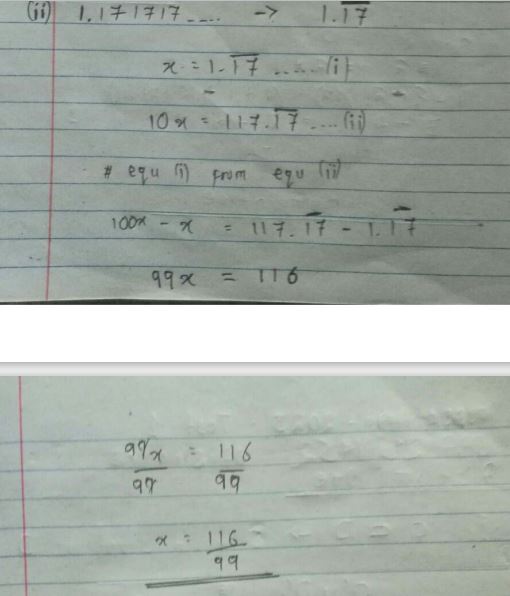 (ii) 1.171717..... -> 1.1̅7̅
x = 1.1̅7̅ ..... (i)
10x = 117.1̅7̅ ....(ii)
# equ (i) from equ (ii)
100x - x = 117.1̅7̅ - 1.1̅7̅
99x = 116
99x/99 = 116/99
x = 116/99